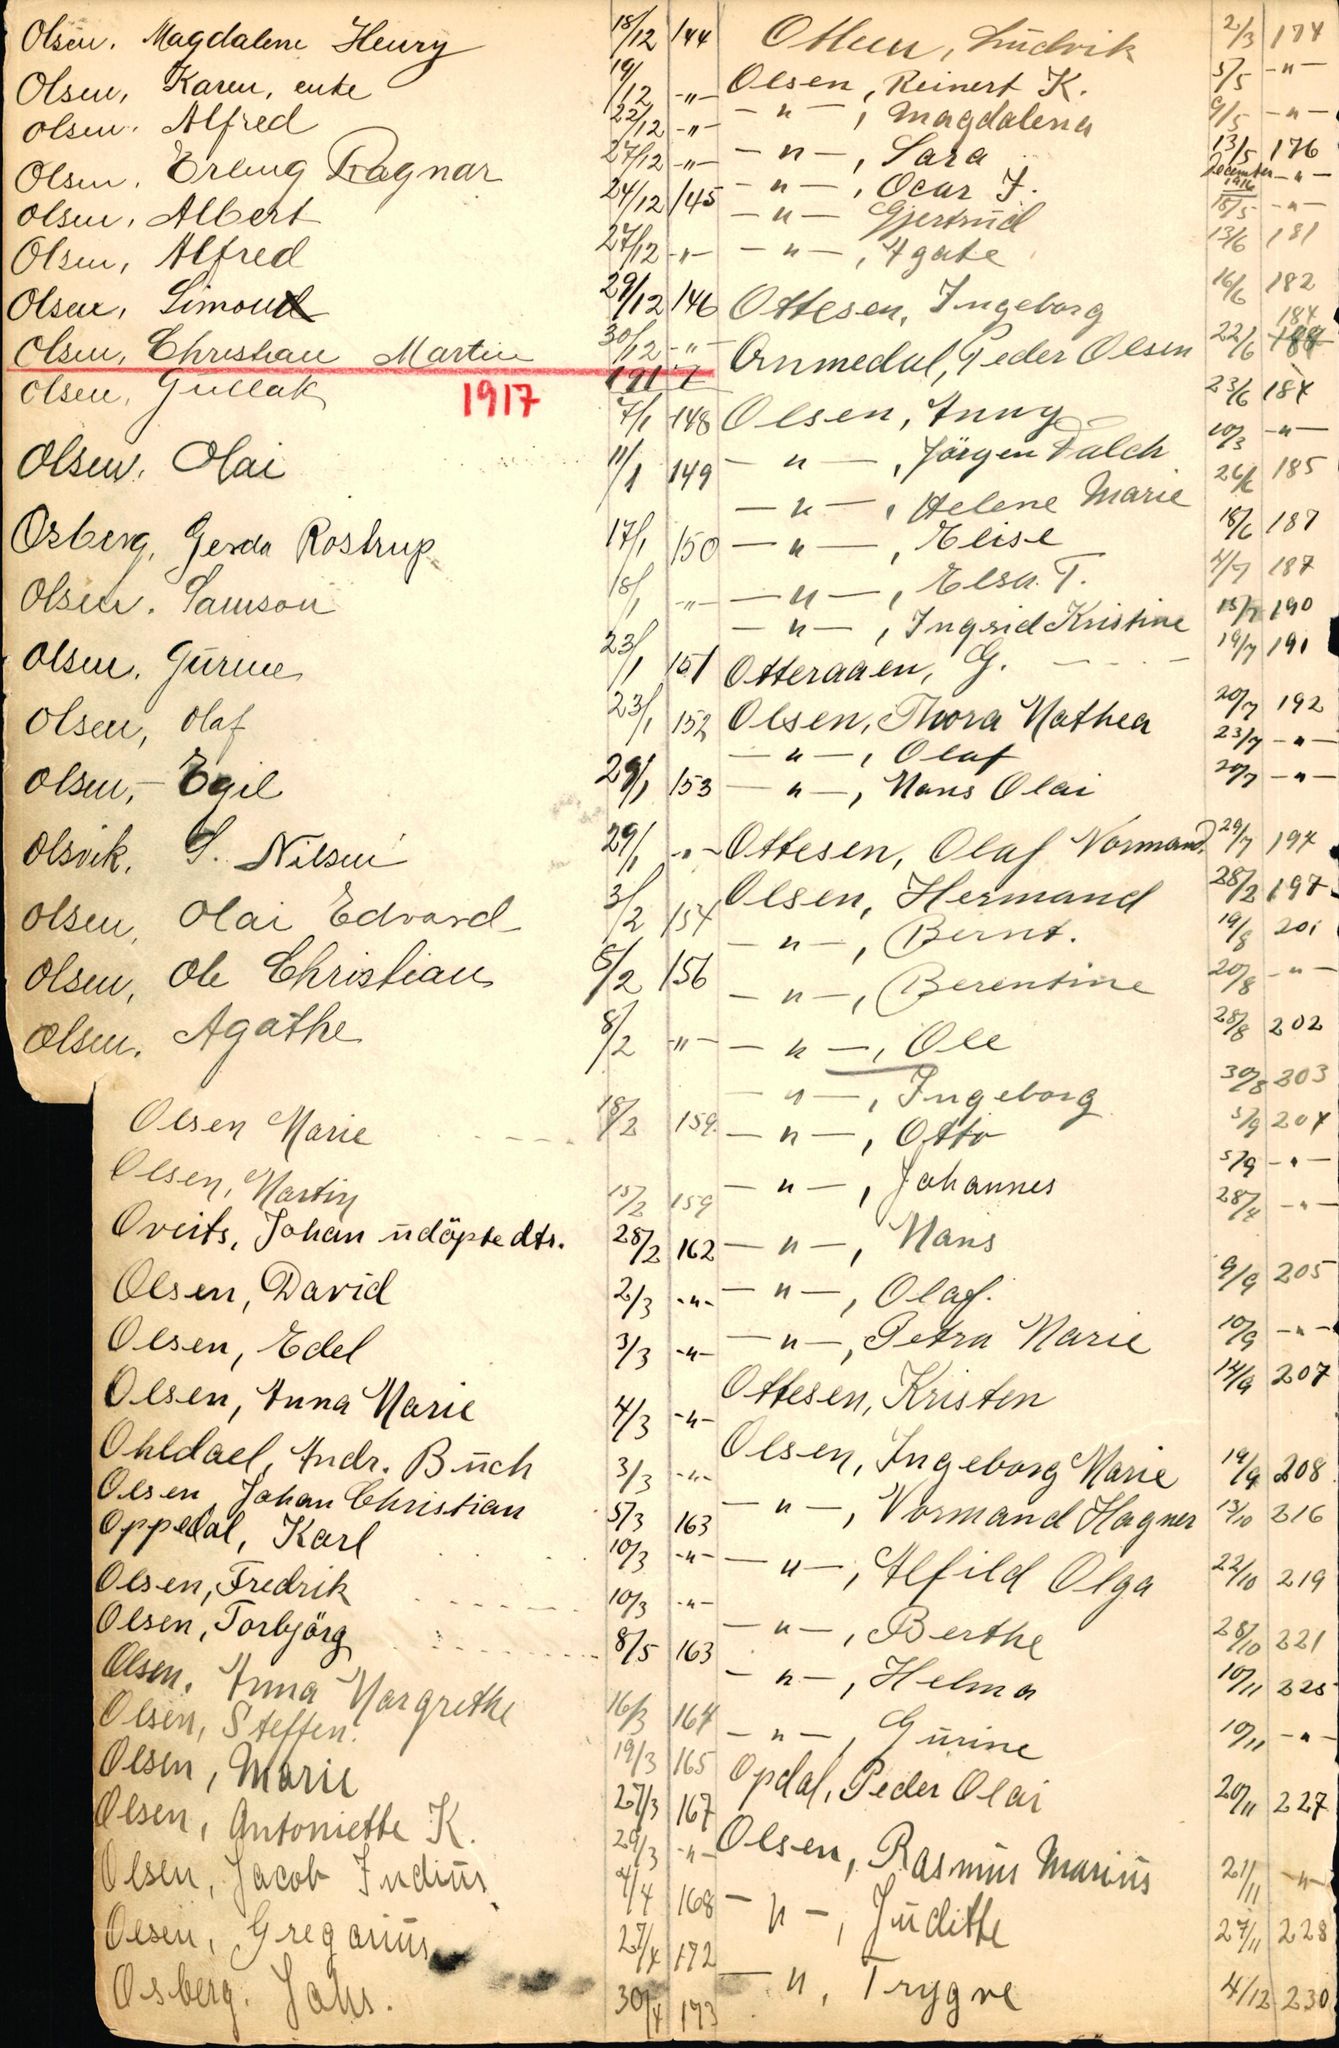 Olsen, Magdalene Henry 18/12 144
Olsen, Karen, enke 19/12 -"-
Olsen, Alfred 22/12 -"-
Olsen, Erling Ragnar 27/12 -"-
Olsen, Albert 24/12 145
Olsen, Alfred 27/12 -"-
Olsen, Simon 29/12 146
Olsen, Christian Martin 30/12 -"-
1917
1917
Olsen, Gullak 7/1 148
Olsen, Olai 11/1 149
Osberg, Gerda Rostrup 17/1 150
Olsen, Samson 18/1 -"-
Olsen, Gurine 23/1 151
Olsen, Olaf 23/1 152
Olsen, Egil 29/1 153
Olsvik, S. Nilsen 29/1 -"-
Olsen, Olai Edvard 3/2 154
Olsen, Ole Christian 5/2 156
Olsen, Agathe 8/2 -"-
Olsen Marie 18/2 159
Olsen, Martin 15/2 159
Oveits, Johan udöpte dtr. 28/2 162
Olsen, David 2/3 -"-
Olsen, Edel 3/3 -"-
Olsen, Anna Marie 4/3 -"-
Ohldael, Andr. Buch 3/3 -"-
Olsen Johan Christian 5/3 163
Oppedal, Karl 10/3 -"-
Olsen, Fredrik 10/3 -"-
Olsen, Torbjörg 8/5 163
Olsen, Anna Margrethe 16/3 164
Olsen, Steffen. 19/3 165
Olsen, Marie 27/3 167
Olsen, Antoniette K. 29/3 -"-
Olsen, Jacob Indius 4/4 168
Olsen, Gregarius 27/4 172
Osberg. Johs. 30/4 173
Ottesen, Ludvik 2/3 174
Olsen, Reinert K. 5/5 -"-
-"-, Magdalena 9/5 -"-
-"-, Sara 13/5 176
-"-, Ocar J. December 1916 -"-
-"- Gjertrud 18/5 -"-
-"-, Agate 13/6 181
Ottesen, Ingeborg 16/6 182
Ornmedal, Peder Olsen 22/6 184
Olsen, Anny 23/6 184
-"-, Jörgen Falch 10/3 -"-
-"-, Helene Marie 26/6 185
-"-, Elise 18/6 187
-"-, Elsa T. 4/7 187
-"-, Ingrid Kristine 15/7 190
Otteraaen, G. 19/7 191
Olsen, Thora Mathea 20/7 192
-"-, Olaf 23/7 -"-
-"-, Hans Olai 20/7 -"-
Ottesen, Olaf Normand. 29/7 194
Olsen, Hermand 28/2 197
-"-, Bernt. 19/8 201
-"-, Berentine 20/8 -"-
-"-, Ole 28/8 202
-"-, Ingeborg 30/8 203
-"-, Otto 5/9 204
-"-, Johannes 5/9 -"-
-"-, Hans 28/4 -"-
-"-, Olaf. 9/9 205
-"-, Petra Marie 10/9 -"-
Ottesen, Kristen 14/9 207
Olsen, Ingeborg Marie 19/9 208
-"-, Normand Hagner 13/10 216
-"-, Alfild Olga 22/10 219
-"-, Berthe 28/10 221
-"-, Helma 10/11 225
-"-, Gurine 10/11 -"-
Opdal, Peder Olai 20/11 227
Olsen, Rasmus Marius 21/11 -"-
-"-, Juditte 27/11 228
-"-, Trygve 4/12 230